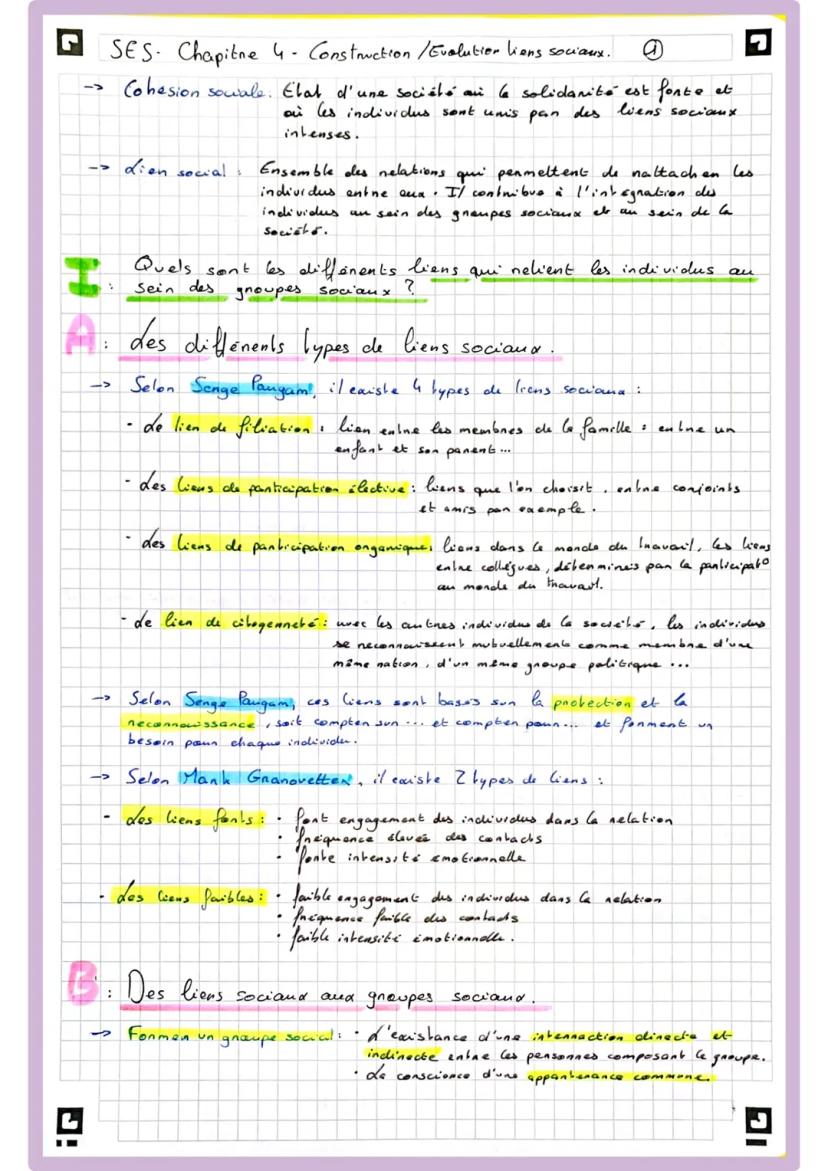 SES- Chapitre 4 - Construction /Evolution liens sociaux. ①
-> Cohesion sociale. Etat d'une société où la solidarité est forte et
où les individus sont unis par des liens sociaux
intenses.
-> Lien social : Ensemble des relations qui permettent de rattacher les
individus entre eux. Il contribue à l'intégration des
individus au sein des groupes sociaux et au sein de la
société.
I : Quels sont les différents liens qui relient les individus au
sein des groupes sociaux ?
A : Les différents types de liens sociaux.
-> Selon Serge Paugam, il existe 4 types de liens sociaux :
- Le lien de filiation : lien entre les membres de la famille : entre un
enfant et son parent...
- Les liens de participation élective : liens que l'on choisit, entre conjoints
et amis par exemple.
- Les liens de participation organique : liens dans le monde du travail, les liens
entre collègues, déterminés par la participat°
au monde du travail.
- Le lien de citoyenneté : avec les autres individus de la société, les individus
se reconnaissent mutuellement comme membre d'une
même nation, d'un même groupe politique ...
-> Selon Serge Paugam, ces liens sont basés sur la protection et la
reconnaissance, soit compter sur ... et compter pour... et forment un
besoin pour chaque individu.
-> Selon Mark Granovetter, il existe 2 types de liens :
- Les liens forts : • fort engagement des individus dans la relation
• fréquence élevée des contacts
• forte intensité émotionnelle
- Les liens faibles : • faible engagement des individus dans la relation
• fréquence faible des contacts
• faible intensité émotionnelle.
B : Des liens sociaux aux groupes sociaux.
-> Former un groupe social : • L'existance d'une interraction directe et
indirecte entre les personnes composant le groupe.
• La conscience d'une appartenance commune.